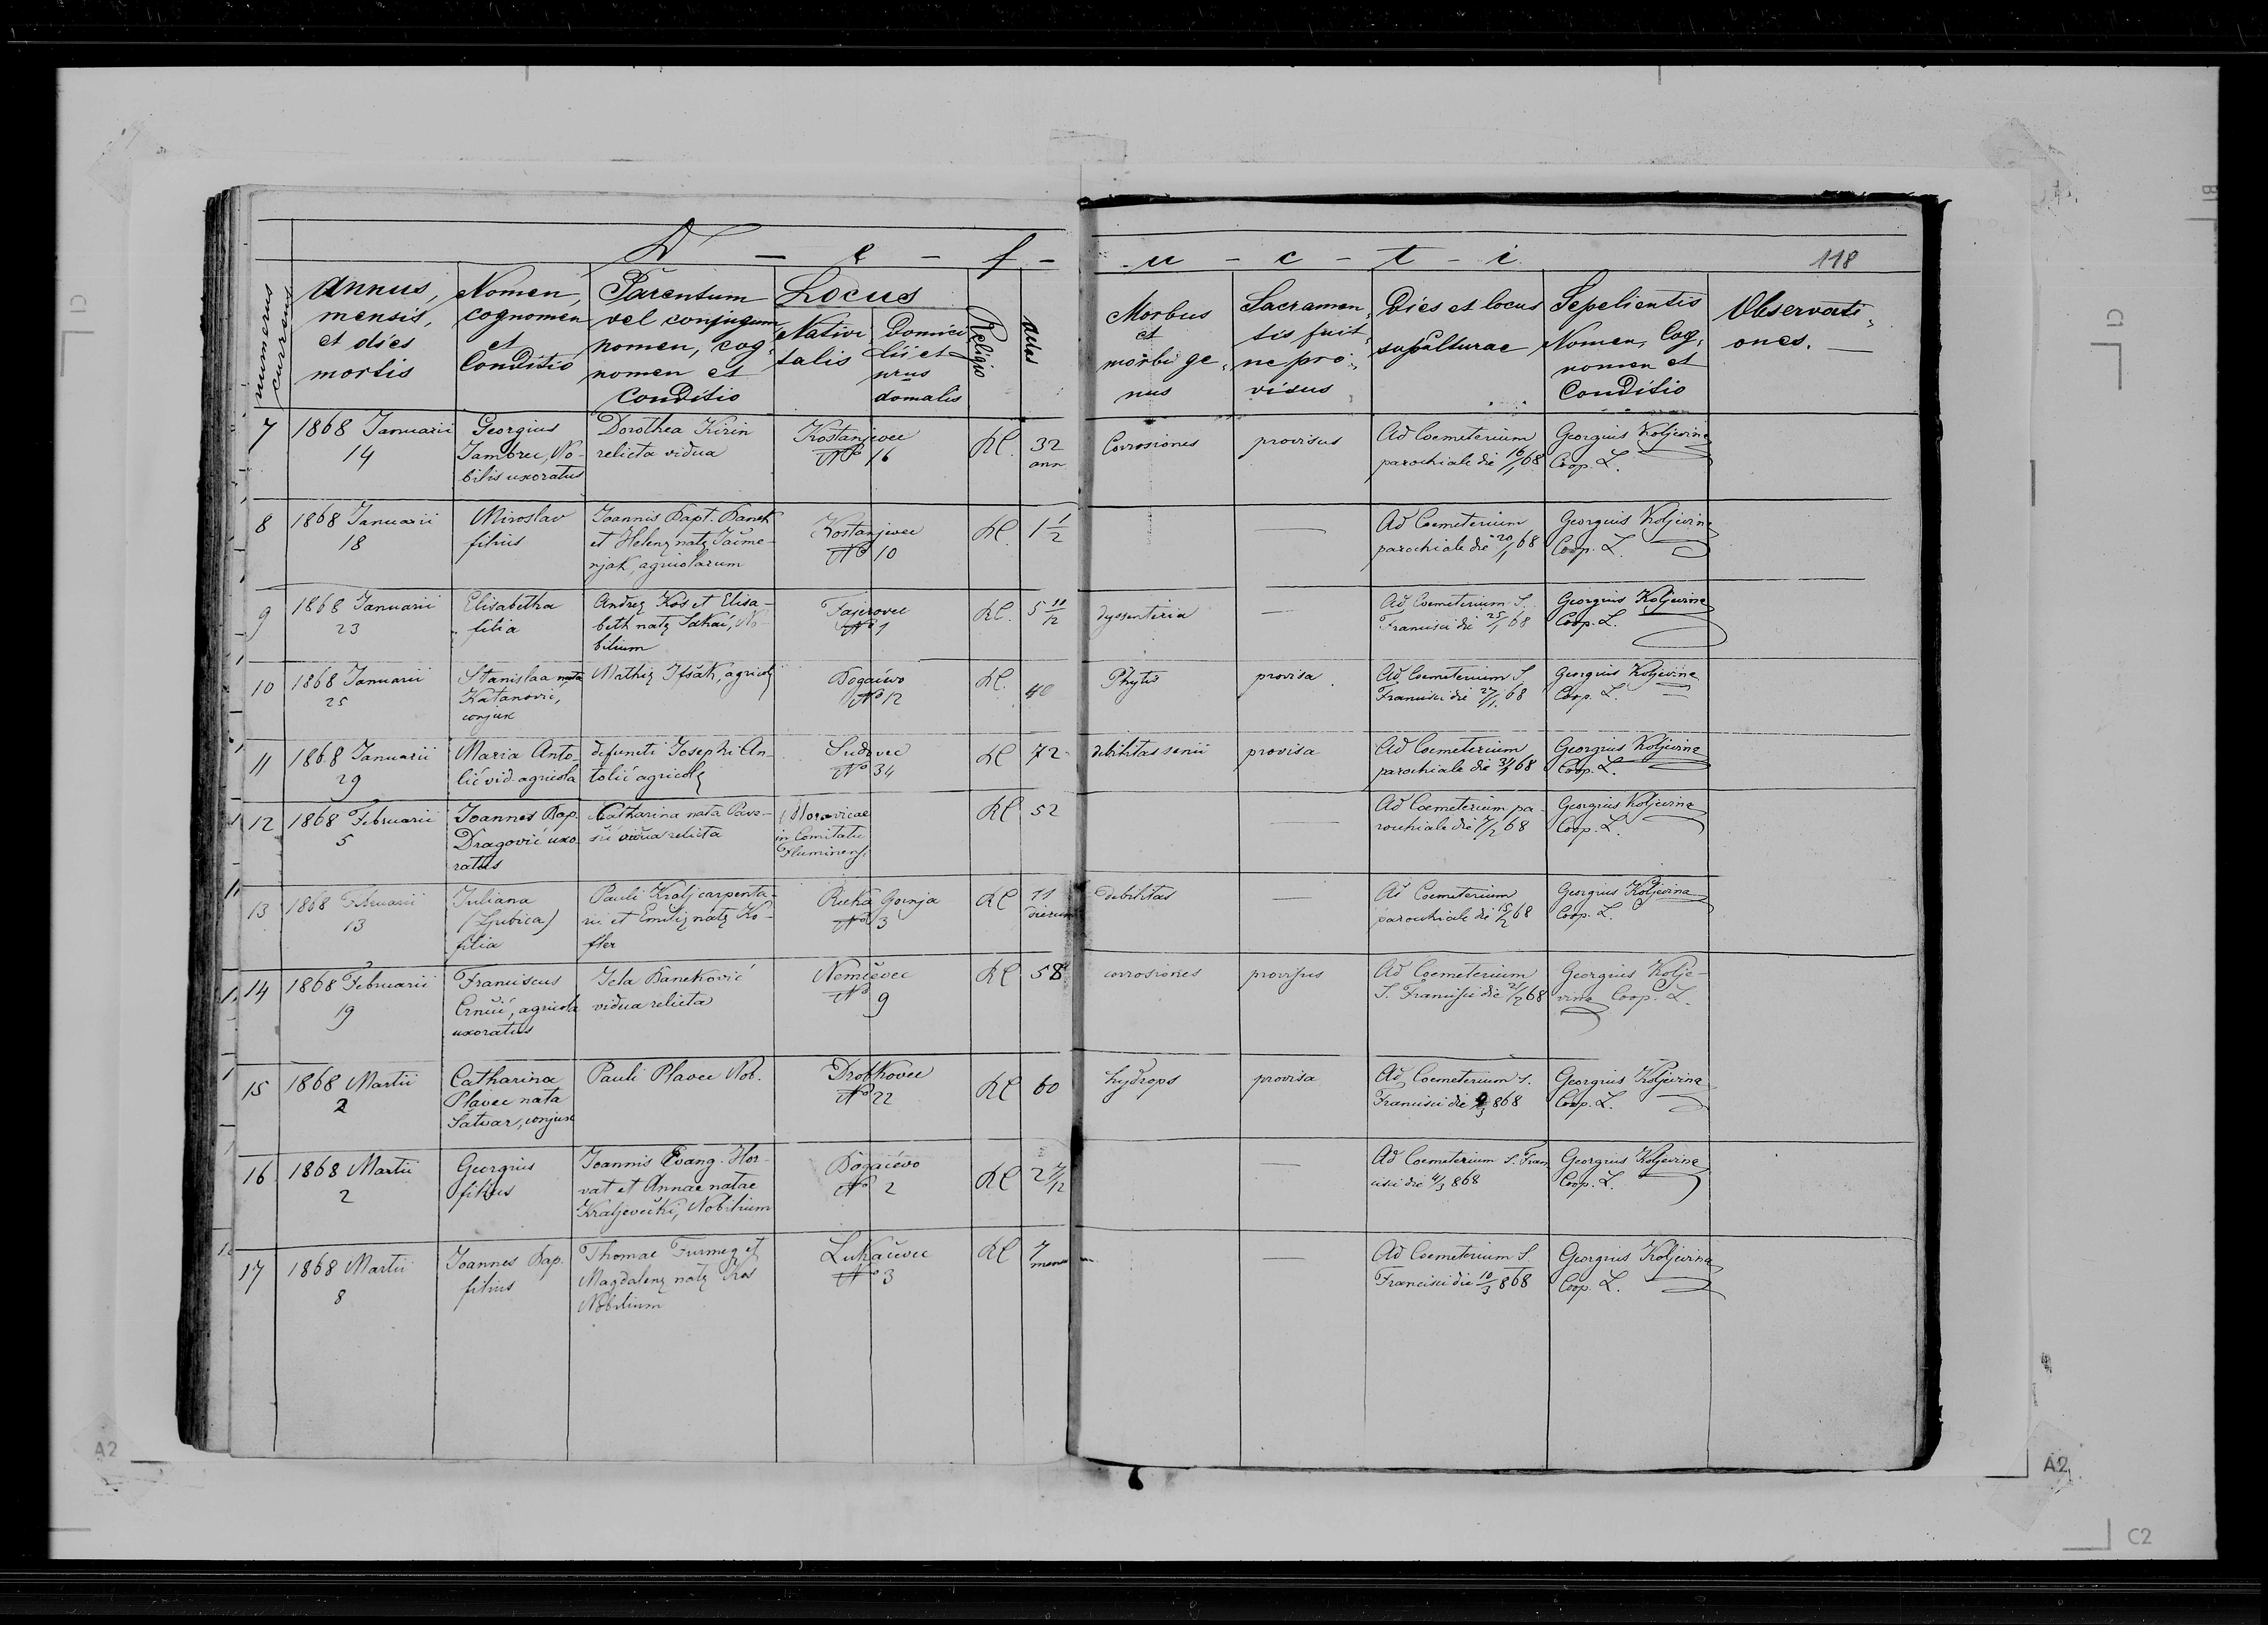 D - e - f -
u - c - t - i
118
numerus currens
Annus, mensis, et dies mortis
Nomen, cognomen et Conditio
Parentum vel conjugum nomen, cog- nomen et Conditio
Locus
Nativi- talis
Domici- lii et nrus domalis
Religio
Aetas
Morbus et morbi ge- nus
Sacramen- tis fuit- ne pro- visus
Dies et locus sepulturae
Sepelientis Nomen, Cog- nomen et Conditio
Observati- ones.
7 1868 Januarii Georgius Dorothea Kirin Kostanjevec RC. 32 Corrosiones provisus Ad Coemeterium Georgius Koljevina
14 Jambrec, No- relicta vidua No 16 ann parochiale die 16/1 68 Coop. L.
bilis uxoratus
8 1868 Januarii Miroslav Joannis Bapt. Banek Kostanjevec RC. 1 1/2 — Ad Coemeterium Georgius Koljevina
18 filius et Helenę natę Jačme- No 10 parochiale die 20/1 68 Coop. L.
njak, agricolarum
9 1868 Januarii Elisabetha Andreę Kos et Elisa- Fajerovec RC. 5 10/12 dyssenteria — Ad Coemeterium S. Georgius Koljevina
23 filia beth natę Sakač, No- No 1 Francisci die 25/1 68 Coop. L.
bilium
10 1868 Januarii Stanislaa nata Mathię agricolę Bogačevo RC. 40 Phytis provisa Ad Coemeterium S. Georgius Koljevina
25 Katanović, No 12 Francisci die 27/1. 68 Coop. L.
conjux
11 1868 Januarii Maria Anto- defuncti Josephi An- Sudovec RC 72 debilitas senii provisa Ad Coemeterium Georgius Koljevina
29 lić vid. agricola tolić agricolę No 34 parochiale die 31/1 68 Coop. L.
12 1868 Februarii Joannes Bap. Catharina nata Pave- Moravicae RC 52 — Ad Coemeterium pa- Georgius Koljevina
5 Dragović uxo- šić vidua relicta in Comitatu rochiale die 7/2 68 Coop. L.
ratus Fluminensi
13 1868 Februarii Juliana Pauli Kralj carpenta- Rieka Gornja RC 11 debilitas — Ad Coemeterium Georgius Koljevina
13 (Ljubica) rii et Emilię natę Ko- No 3 dierum parochiale die 15/2 68 Coop. L.
filia fler
14 1868 Februarii Franciscus Jela Baneković Nemčevec RC 58 corrosiones provisus Ad Coemeterium Georgius Kolje-
19 Crnčić, agricola vidua relicta No 9 S. Francisci die 21/2 68 vina Coop. L.
uxoratus
15 1868 Martii Catharina Pauli Plavec Nob. Drobkovec RC 60 hydrops provisa Ad Coemeterium S. Georgius Koljevina
2 Plavec nata No 22 Francisci die 868 Coop. L.
Šatvar, conjux
16 1868 Martii Georgius Joannis Evang. Hor- Bogačevo RC 2 7/12 — Ad Coemeterium S. Fran Georgius Koljevina
2 filius vat et Annae natae No 2 cisci die 4/3 868 Coop. L.
Kraljevečki, Nobilium
17 1868 Martii Joannes Bap. Thomae Furmeg et Lukačevec RC 7 — — Ad Coemeterium S. Georgius Koljevina
8 filius Magdalenę natę Kos No 3 mens Francisci die 10/3 868 Coop. L.
Nobilium
C1
C1
B1
A2
A2
C2